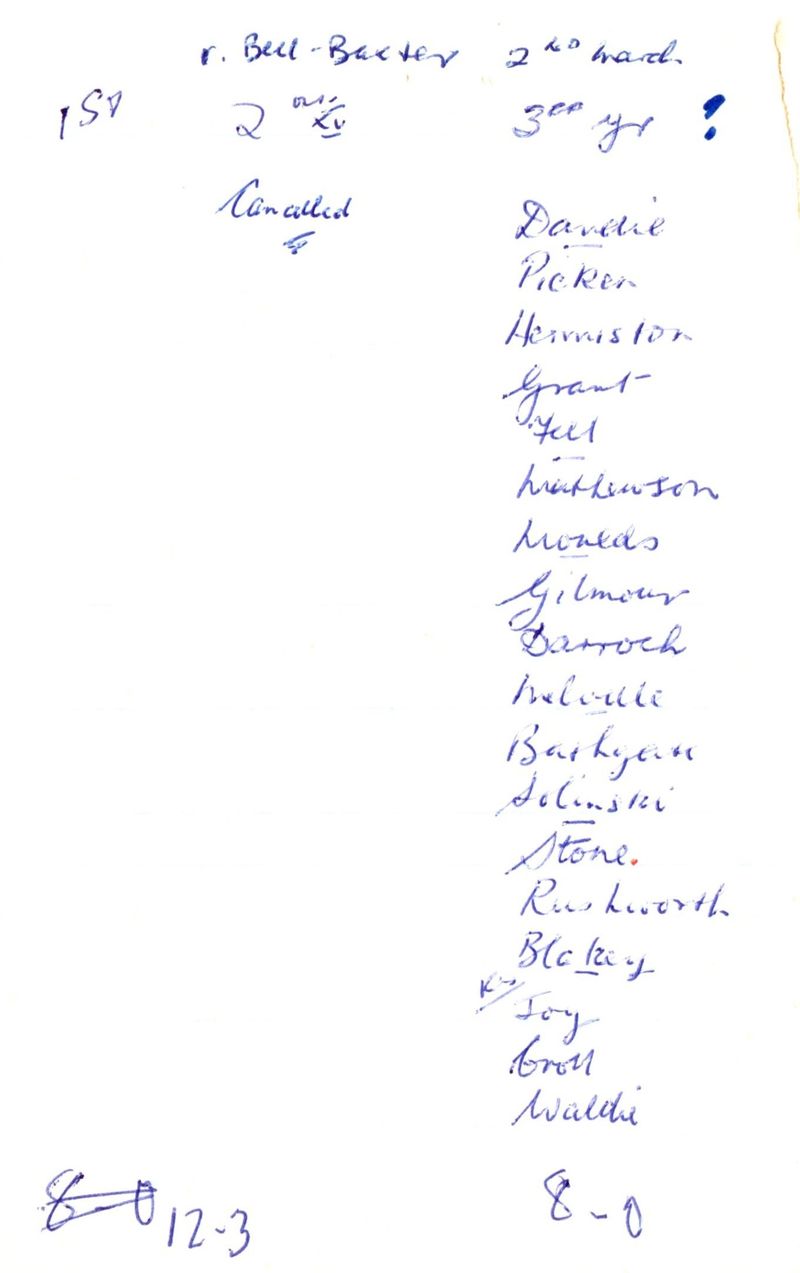 v. Bell-Baxter 2ND March
1ST 2ND XV 3RD yr ?
Cancelled
Dandie
Picken
Hermiston
Grant
Fell
Mathewson
Gilmour
Darroch
Melville
Solinski
Stone.
Rushworth
Blakey
Res Joy
Croll
Waldie
8-0 12-3 8-0